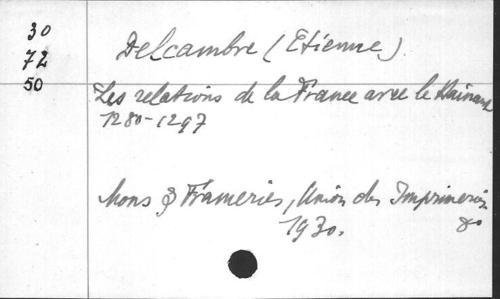 30
72
50
Delcambre (Etienne)
Les relations de la France avec le Hainaut
1280-1297
Mons & Frameries, Union des Imprimeries
1930. 8o